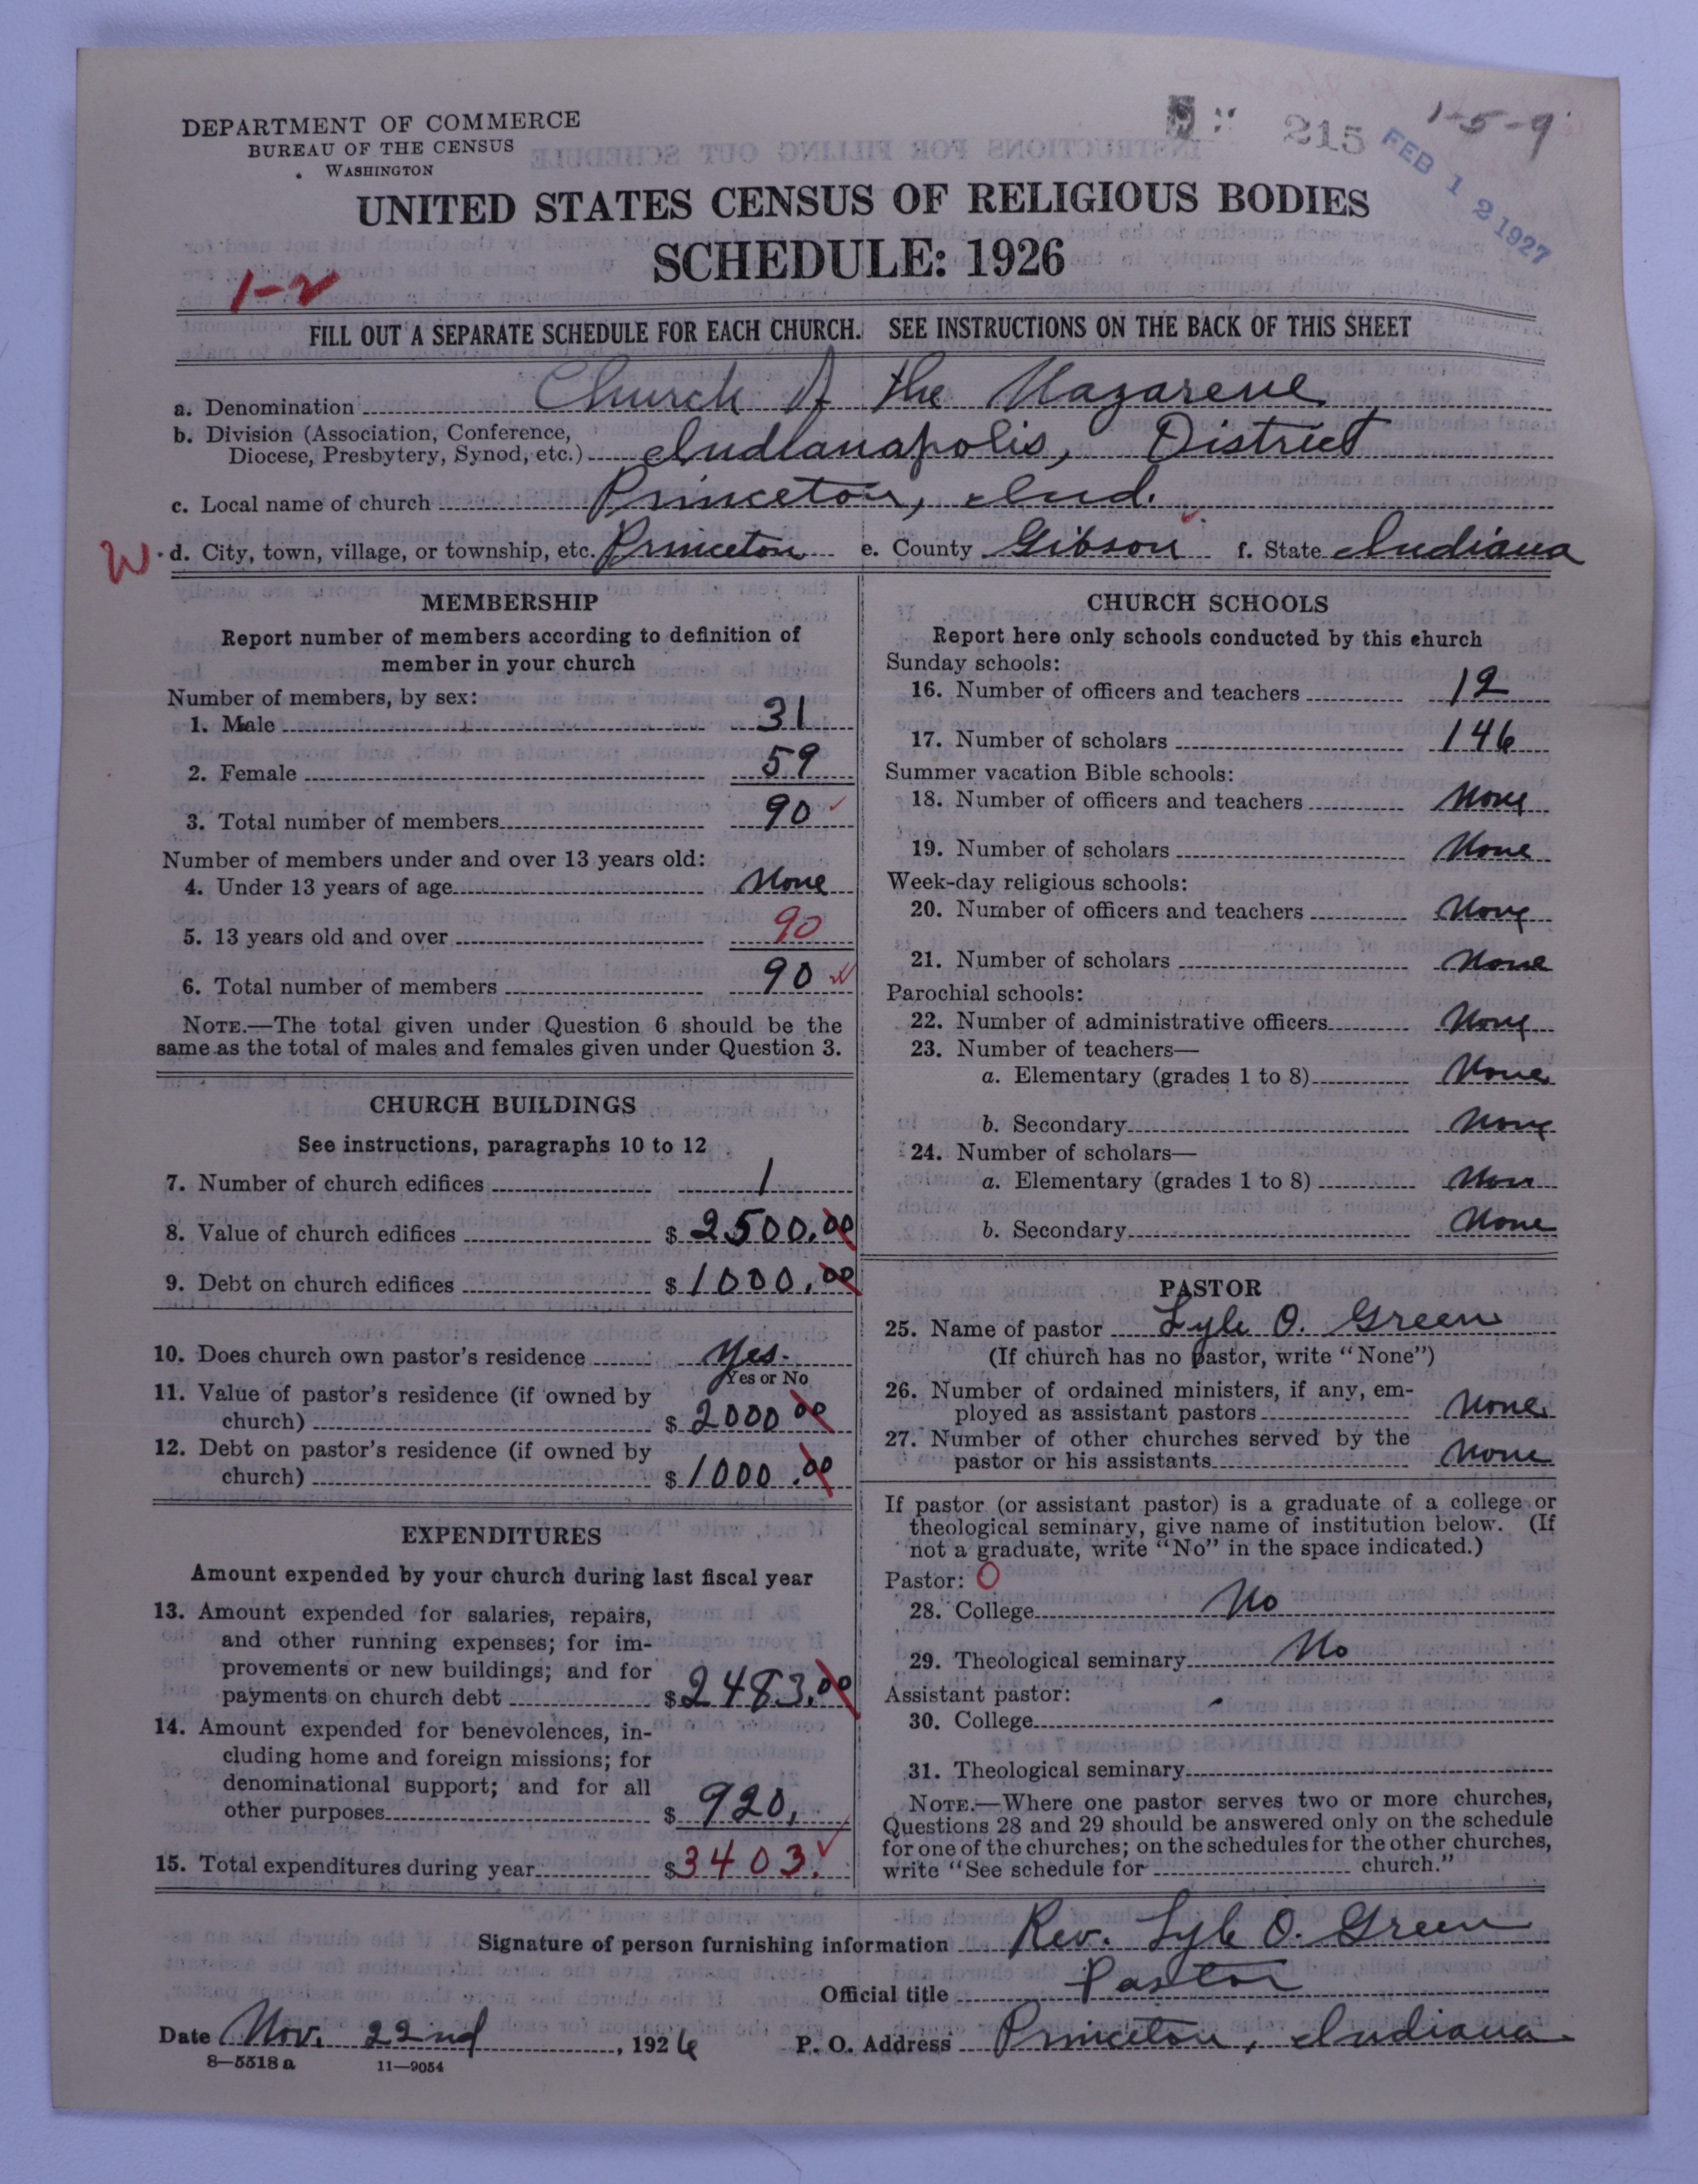 DEPARTMENT OF COMMERCE
BUREAU OF THE CENSUS
WASHINGTON
215
1-5-9
FEB 12 1927
UNITED STATES CENSUS OF RELIGIOUS BODIES
SCHEDULE: 1926
1-2
FILL OUT A SEPARATE SCHEDULE FOR EACH CHURCH. SEE INSTRUCTIONS ON THE BACK OF THIS SHEET
a. Denomination Church of the Nazarene
b. Division (Association, Conference,
Diocese, Presbytery, Synod, etc.) Indianapolis, District
c. Local name of church Princeton, Ind.
W d. City, town, village, or township, etc. Princeton e. County Gibson f. State Indiana
MEMBERSHIP
Report number of members according to definition of
member in your church
Number of members, by sex:
1. Male 31
2. Female 59
3. Total number of members 90
Number of members under and over 13 years old:
4. Under 13 years of age None
5. 13 years old and over 90
6. Total number of members 90
NOTE.—The total given under Question 6 should be the
same as the total of males and females given under Question 3.
CHURCH BUILDINGS
See instructions, paragraphs 10 to 12
7. Number of church edifices 1
8. Value of church edifices $ 2500.00
9. Debt on church edifices $ 1000.00
10. Does church own pastor's residence Yes.
Yes or No
11. Value of pastor's residence (if owned by
church) $ 2000 00
12. Debt on pastor's residence (if owned by
church) $ 1000.00
EXPENDITURES
Amount expended by your church during last fiscal year
13. Amount expended for salaries, repairs,
and other running expenses; for im-
provements or new buildings; and for
payments on church debt $ 2483.00
14. Amount expended for benevolences, in-
cluding home and foreign missions; for
denominational support; and for all
other purposes $ 920.
15. Total expenditures during year $ 3403.
CHURCH SCHOOLS
Report here only schools conducted by this church
Sunday schools:
16. Number of officers and teachers 12
17. Number of scholars 146
Summer vacation Bible schools:
18. Number of officers and teachers None
19. Number of scholars None
Week-day religious schools:
20. Number of officers and teachers None
21. Number of scholars None
Parochial schools:
22. Number of administrative officers None
23. Number of teachers—
a. Elementary (grades 1 to 8) None
b. Secondary None
24. Number of scholars—
a. Elementary (grades 1 to 8) None
b. Secondary None
PASTOR
25. Name of pastor Lyle O. Green
(If church has no pastor, write "None")
26. Number of ordained ministers, if any, em-
ployed as assistant pastors None
27. Number of other churches served by the
pastor or his assistants None
If pastor (or assistant pastor) is a graduate of a college or
theological seminary, give name of institution below. (If
not a graduate, write "No" in the space indicated.)
Pastor: O
28. College No
29. Theological seminary No
Assistant pastor:
30. College
31. Theological seminary
NOTE.—Where one pastor serves two or more churches,
Questions 28 and 29 should be answered only on the schedule
for one of the churches; on the schedules for the other churches,
write "See schedule for church."
Signature of person furnishing information Rev. Lyle O. Green
Official title Pastor
Date Nov. 22nd, 1926 P. O. Address Princeton, Indiana
8—5518 a 11—9054